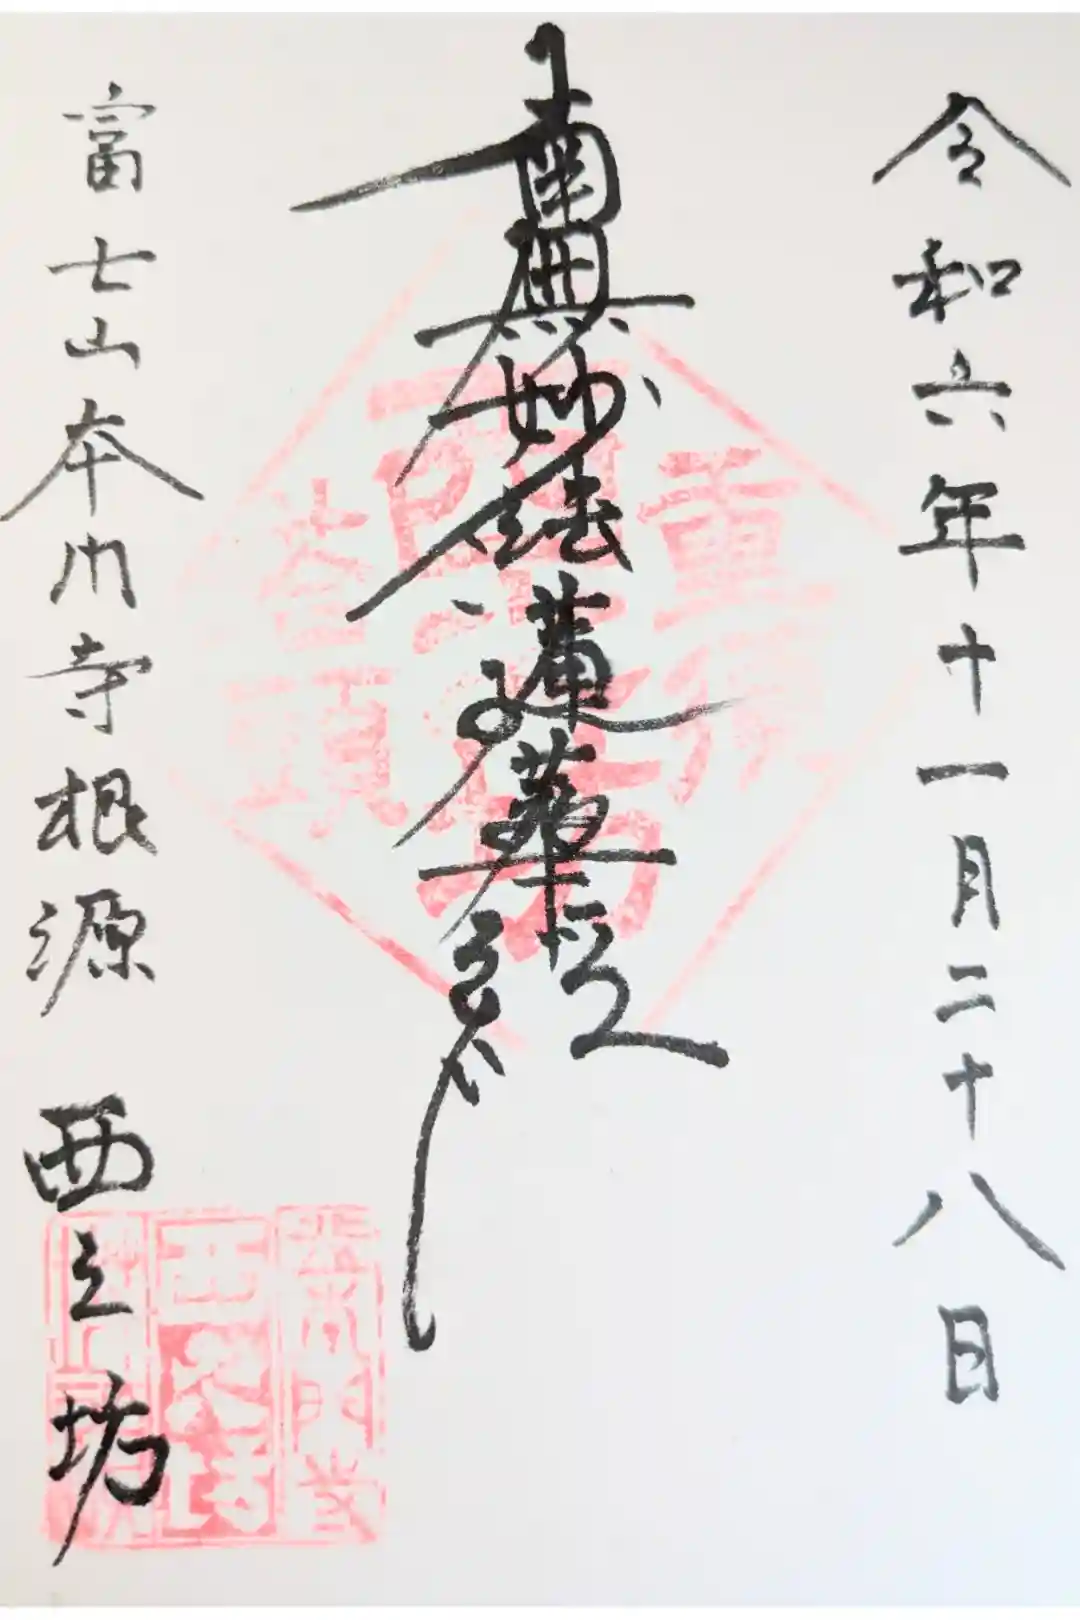 令和六年十一月二十八日
南無妙法蓮華経
富士山本門寺根源
西之坊
重須
塔頭
西之坊